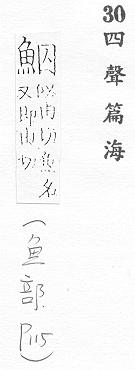 30
四聲篇海
鮂
似由切魚名
又即由切
(鱼部 P115)